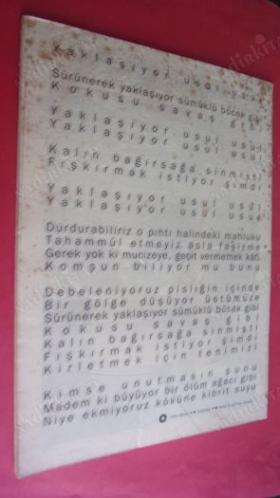 Yaklaşıyor usul usul
Sürünerek yaklaşıyor sümüklü böcek gibi
Kokusu savaş gibi
Yaklaşıyor usul usul
Yaklaşıyor usul usul
Kalın bağırsağa sinmişti
Fışkırmak istiyor şimdi
Yaklaşıyor usul usul
Yaklaşıyor usul usul
Durdurabiliriz o pıhtı halindeki mahluku
Tahammül etmeyiz asla faşizme
Gerek yok ki mucizeye, geçit vermemek kâfi
Komşun biliyor mu bunu
Debeleniyoruz pisliğin içinde
Bir gölge düşüyor üstümüze
Sürünerek yaklaşıyor sümüklü böcek gibi
Kokusu savaş gibi
Kalın bağırsağa sinmişti
Fışkırmak istiyor şimdi
Kirletmek için tenimizi
Kimse unutmasın şunu
Madem ki büyüyor bir ölüm ağacı gibi
Niye ekmiyoruz köküne kibrit suyu